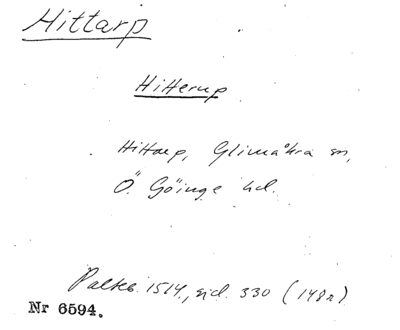 Hittarp
Hitterup
Hittarp, Glimåkra sn,
Ö. Göinge hd.
Palteb. 1514, sid. 330 (148r)
Nr 6594.